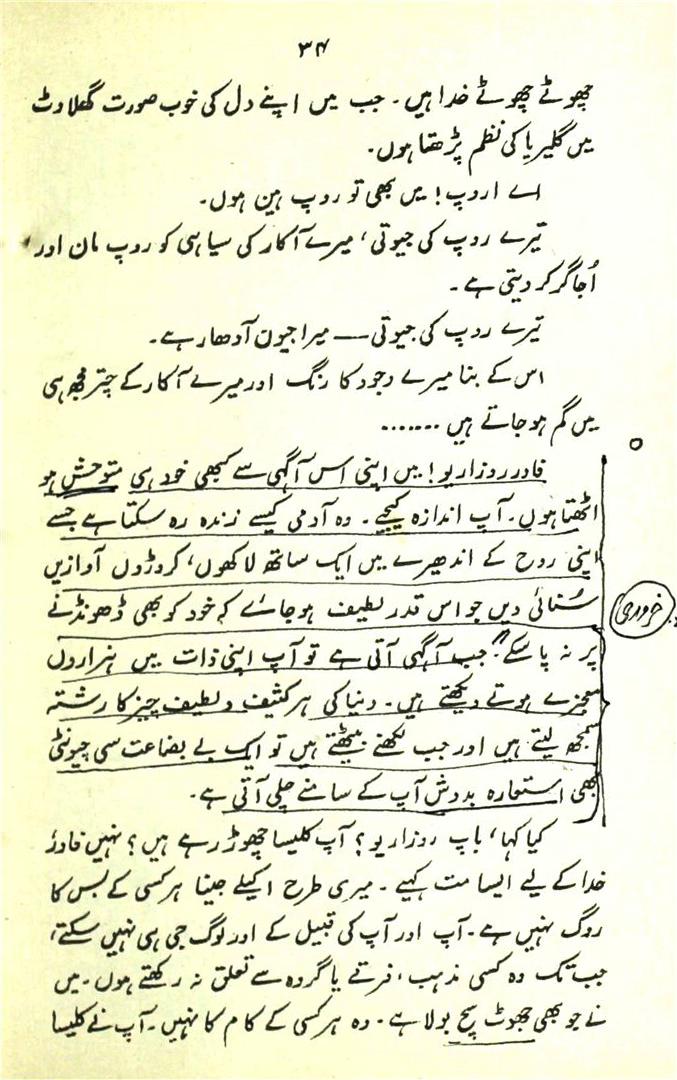 ۳۴
چھوٹے چھوٹے خدا ہیں۔ جب میں اپنے دل کی خوب صورت گھلاوٹ
میں گلیریا کی نظم پڑھتا ہوں۔
اے اروپ! میں بھی تو روپ ہین ہوں۔
تیرے روپ کی جیوتی، میرے آکار کی سیاہی کو روپ مان اور
اُجاگر کر دیتی ہے۔
تیرے روپ کی جیوتی — میرا جیون آدھار ہے۔
اس کے بنا میرے وجود کا رنگ اور میرے آکار کے چتر مجھ ہی
میں گم ہو جاتے ہیں .......
فادر روزاریو! میں اپنی اس آگہی سے کبھی خود ہی متوحش ہو
اٹھتا ہوں۔ آپ اندازہ کیجیے۔ وہ آدمی کیسے زندہ رہ سکتا ہے جسے
اپنی روح کے اندھیرے میں ایک ساتھ لاکھوں، کروڑوں آوازیں
سُنائی دیں جو اس قدر لطیف ہو جائے کہ خود کو بھی ڈھونڈنے
پر نہ پا سکے۔" جب آگہی آتی ہے تو آپ اپنی ذات میں ہزاروں
معجزے ہوتے دیکھتے ہیں۔ دنیا کی ہر کثیف و لطیف چیز کا رشتہ
سمجھ لیتے ہیں اور جب لکھنے بیٹھتے ہیں تو ایک بے بضاعت سی چیونٹی
بھی استعارہ بدوش آپ کے سامنے چلی آتی ہے۔
ضروری
کیا کہا، باپ روزاریو؟ آپ کلیسا چھوڑ رہے ہیں؟ نہیں فادر
خدا کے لیے ایسا مت کیجیے۔ میری طرح اکیلے جینا ہر کسی کے بس کا
روگ نہیں ہے۔ آپ اور آپ کی قبیل کے اور لوگ جی ہی نہیں سکتے،
جب تک وہ کسی مذہب، فرقے یا گروہ سے تعلق نہ رکھتے ہوں۔ میں
نے جو بھی جھوٹ سچ بولا ہے۔ وہ ہر کسی کے کام کا نہیں۔ آپ نے کلیسا